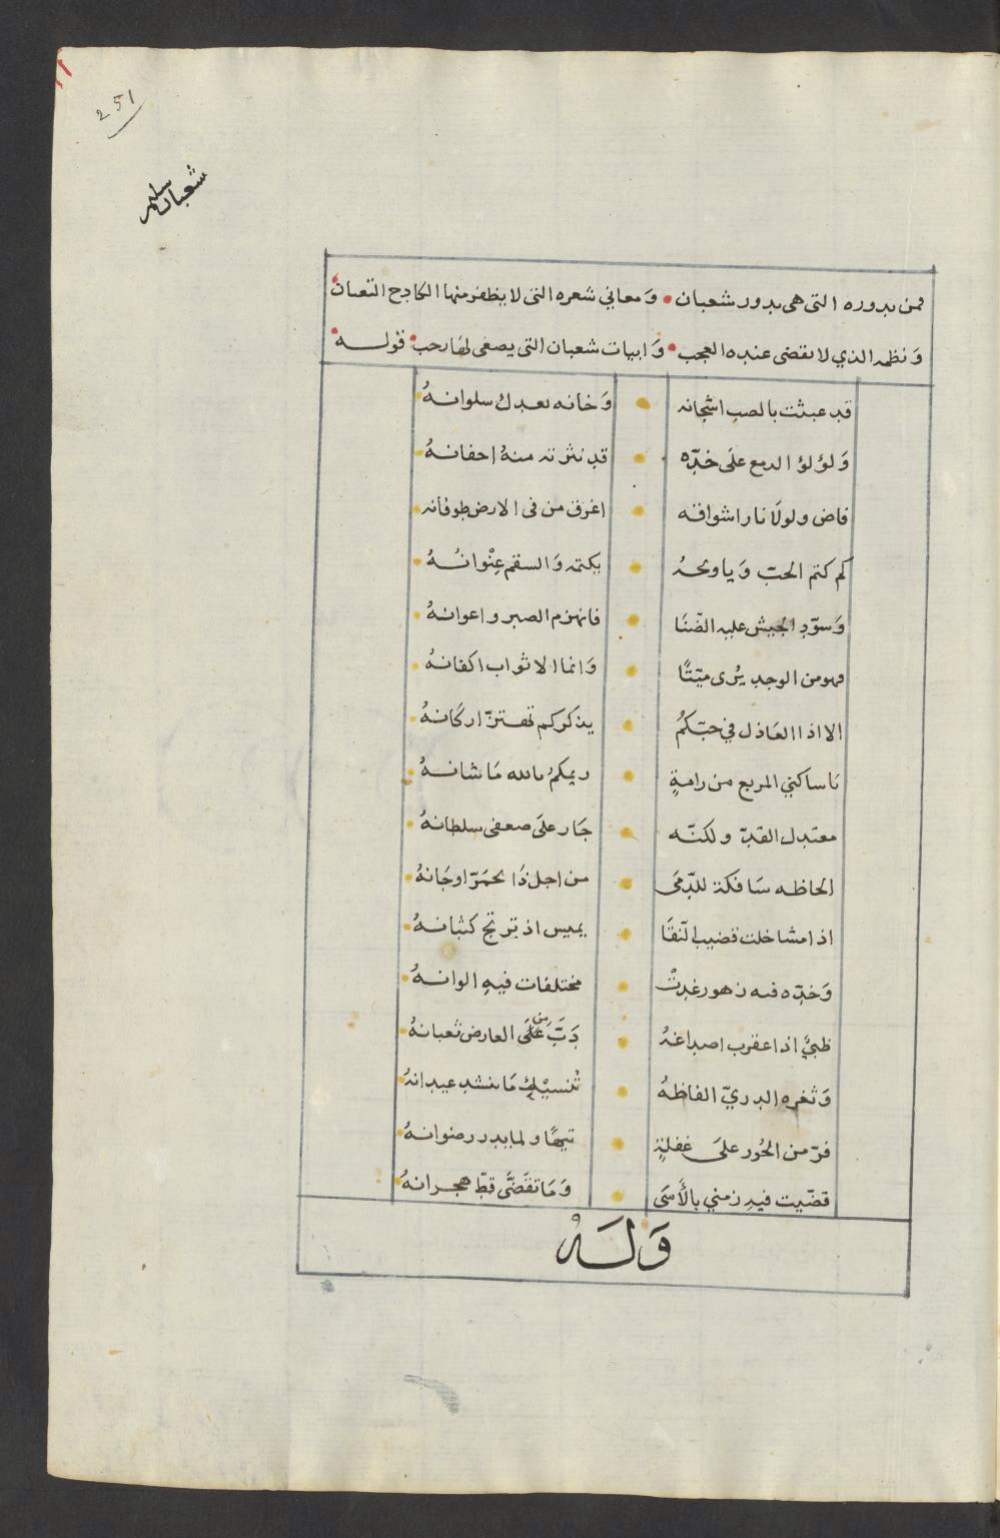 251
شعبان سليم
فمن بدوره التى هى بدور شعبان • وَمعاني شعره التى لا يظفر منها الكادح التعبان
وَنظمه الذي لا يقضى عنده العجب • وَابيات شعبان التى يصغى لها رحب • قولـه
قد عبثت بالصب اشجانه • وَخانه بعدك سلوانهُ
وَلؤلؤ الدمع علَى خدّه • قد نثرته منهُ اجفانهُ
فاض ولولَا نار اشواقه • اغرق من فى الارض طوفانه
كم كتم الحبّ وَيا ويحهُ • يكتمه وَالسقم عِنْوانُهُ
وَسوّد الجيش عليه الضّنَا • فانهزم الصبر واعوانهُ
فهو من الوجد يُرى ميّتًا • وَانما الاثواب اكفانهُ
الا اذا العَاذل في حبّكمُ • يذكركم تهتزّ اركَانهُ
يَا ساكني المربع من رامةٍ • ريمكمُ بالله مَا شانهُ
معتدل القدّ ولكنّه • جَار علَى ضعفى سلطانهُ
الحاظه سَافكة للدّمَى • من اجل ذَا تحمَرّ اوجَانهُ
اذا مشا خلت قضيب النّقَا • يميس اذ ترتج كثبانهُ
وَخدّه فيه زهور غدتْ • مختلفات فيهِ الوانهُ
ظبيٌ اذا عقرب اصداغهُ • دَبَّ من عَلَى العارض ثعبانهُ
وَثغره الدريّ الفاظهُ • تُنسيْكِ مَا ينشد عيدانهُ
فرّ من الحُور علَى غفلةٍ • تيهًا ولما يدر رضوانهُ
قضّيت فيهِ زمني بالأَسَى • وَمَا تقَضَّى قطّ هجرانهُ
وَلَـهُ